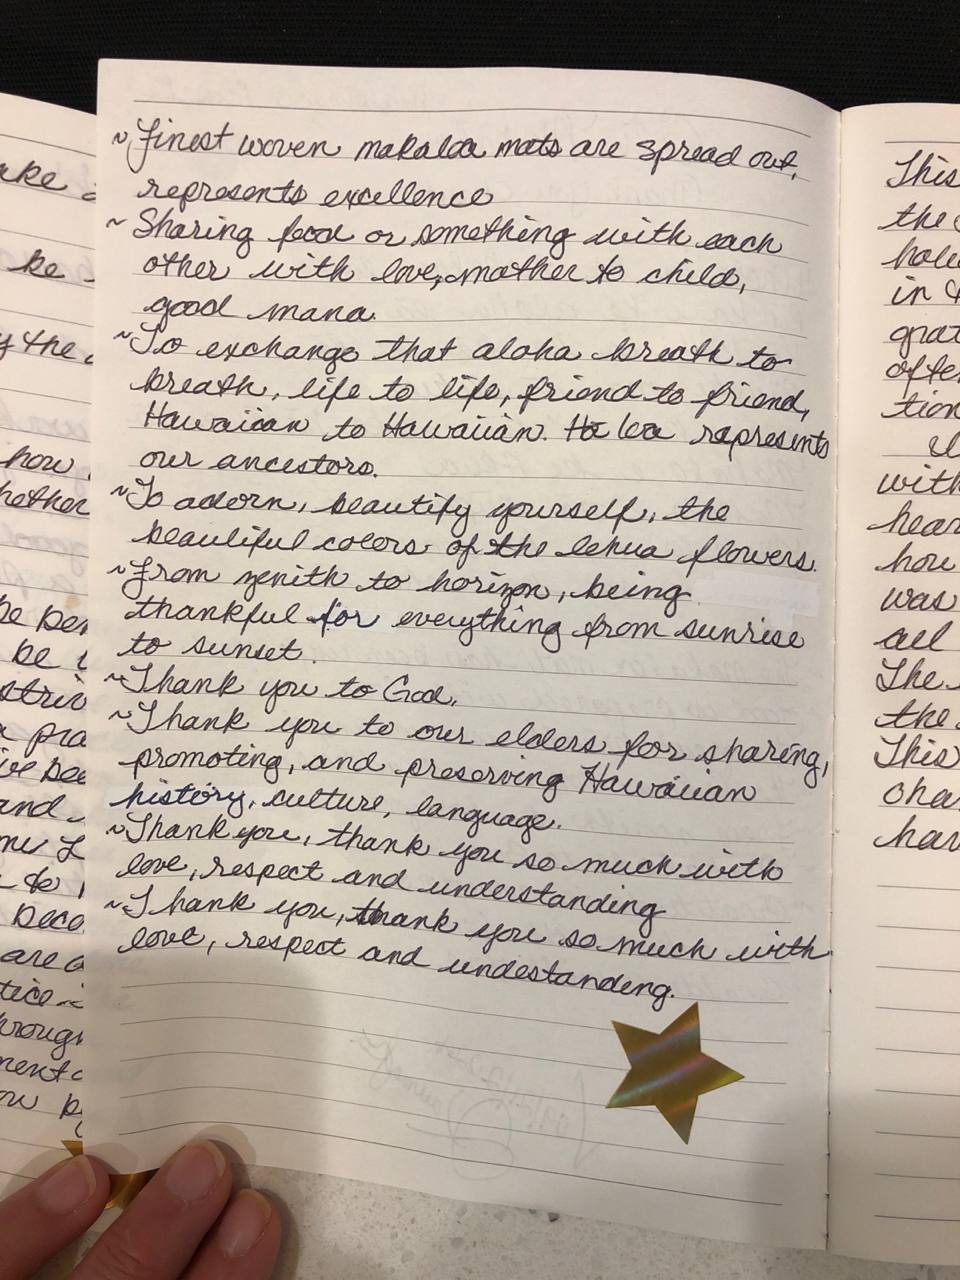 ~ Finest woven makaloa mats are spread out,
represents excellence
~ Sharing food or something with each
other with love, mother to child,
good mana.
~ To exchange that aloha breath to
breath, life to life, friend to friend,
Hawaiian to Hawaiian. Ha loa represents
our ancestors.
~ To adorn, beautify yourself, the
beautiful colors of the lehua flowers.
~ From zenith to horizon, being
thankful for everything from sunrise
to sunset.
~ Thank you to God.
~ Thank you to our elders for sharing,
promoting, and preserving Hawaiian
history, culture, language.
~ Thank you, thank you so much with
love, respect and understanding
~ Thank you, thank you so much with
love, respect and undestanding.
ke
y the
how
be
and
are
This
the
in
with
how
was
all
The
the
This